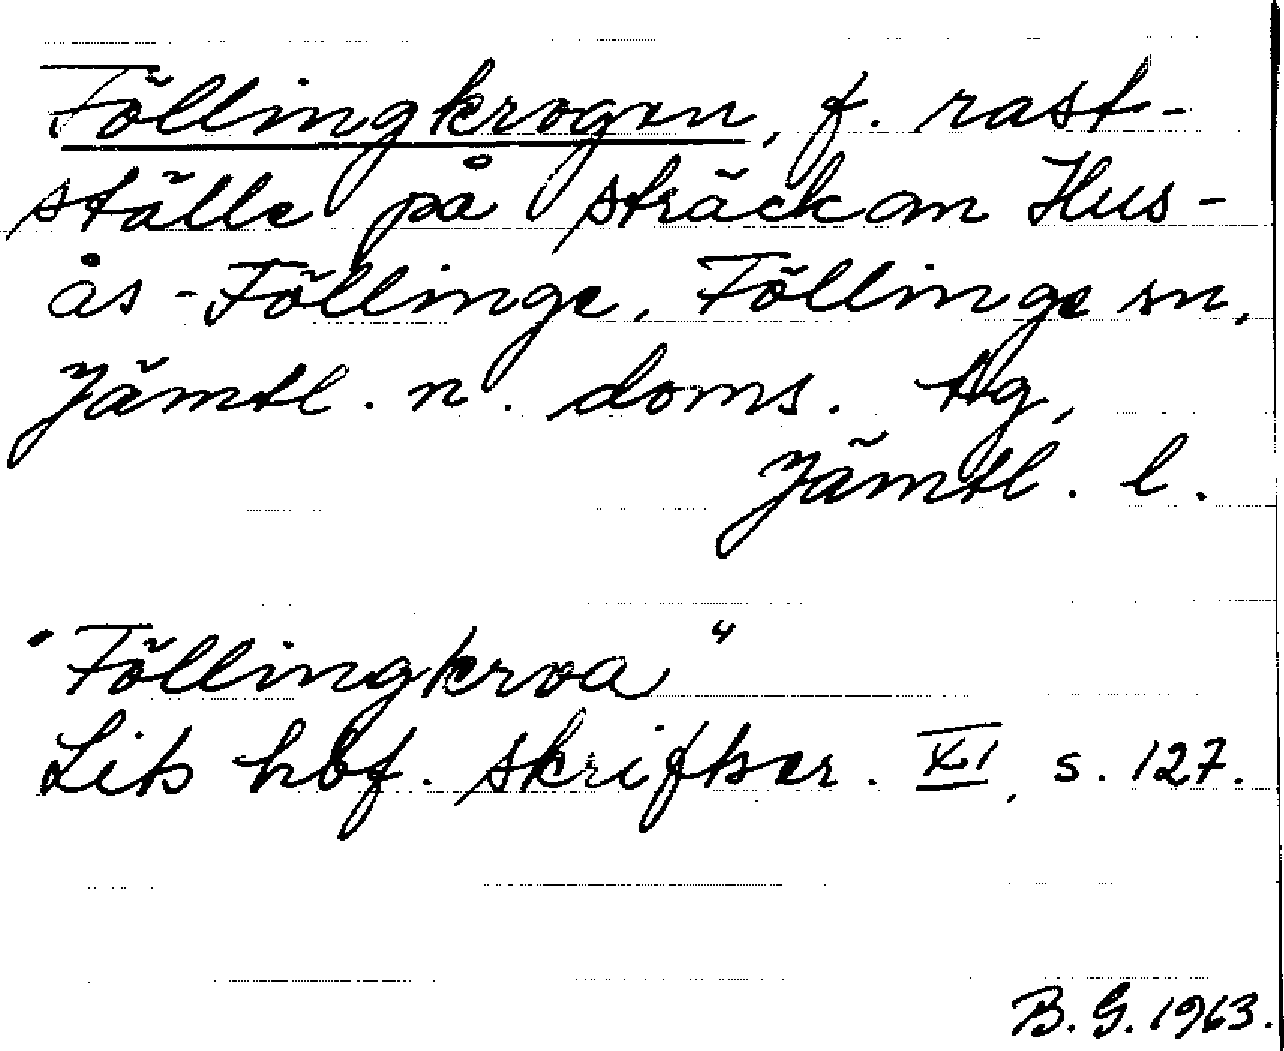 Föllingkrogen, f. rast-
ställe på sträckan Hus-
ås - Föllinge. Föllinge sn,
Jämtl. n. doms. tg,
Jämtl. l.
"Föllingkroa"
Lits hbf. skriftser. XI, s. 127.
B. G. 1963.